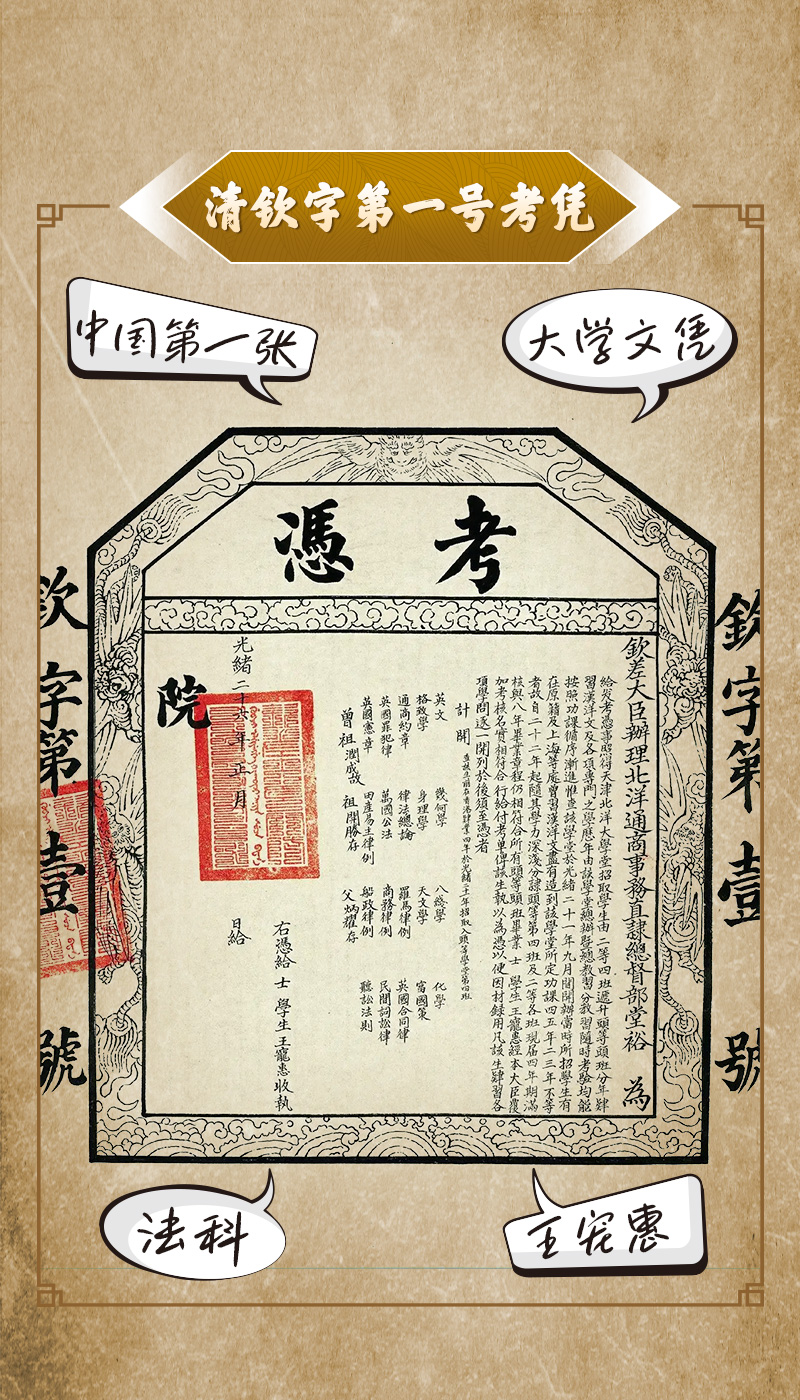 清钦字第一号考凭
中国第一张
大学文凭
考憑
欽字第壹號
欽差大臣辦理北洋通商事務直隸總督部堂裕 為
給發考憑事照得天津北洋大學堂招取學生由二等四班遞升頭等頭班分年肄
習漢洋文及各項專門之學歷年由該學堂總辦暨總教習分教習隨時考驗均能
按照功課循序漸進惟查該學堂於光緒二十一年九月間開辦當時所招學生有
在原籍及上海等處曾習漢洋文藝有造到該學堂所定功課四五年二三年不等
者故自二十二年起隨其學力深淺分隸頭等第四班及二等各班現屆四年期滿
核與八年畢業章程仍相符合所有頭等頭班畢業士 學生王寵惠經本大臣覆
加考核名實相符合行給付考單傳該生執以為憑以便因材録用凡該生肄習各
項學問逐一開列於後須至憑者
計開
英文 幾何學 八綫學 化學
格致學 身理學 天文學 富國策
通商約章 律法總論 羅馬律例 英國合同律
英國罪犯律 萬國公法 商務律例 民間詞訟律
英國憲章 田產易主律例 船政律例 聽訟法則
曾祖潤成故 祖開勝存 父炳耀存
右憑給 士 學生王寵惠收執
光緒二十六年正月 日給
院
欽字第壹號
法科
王宠惠